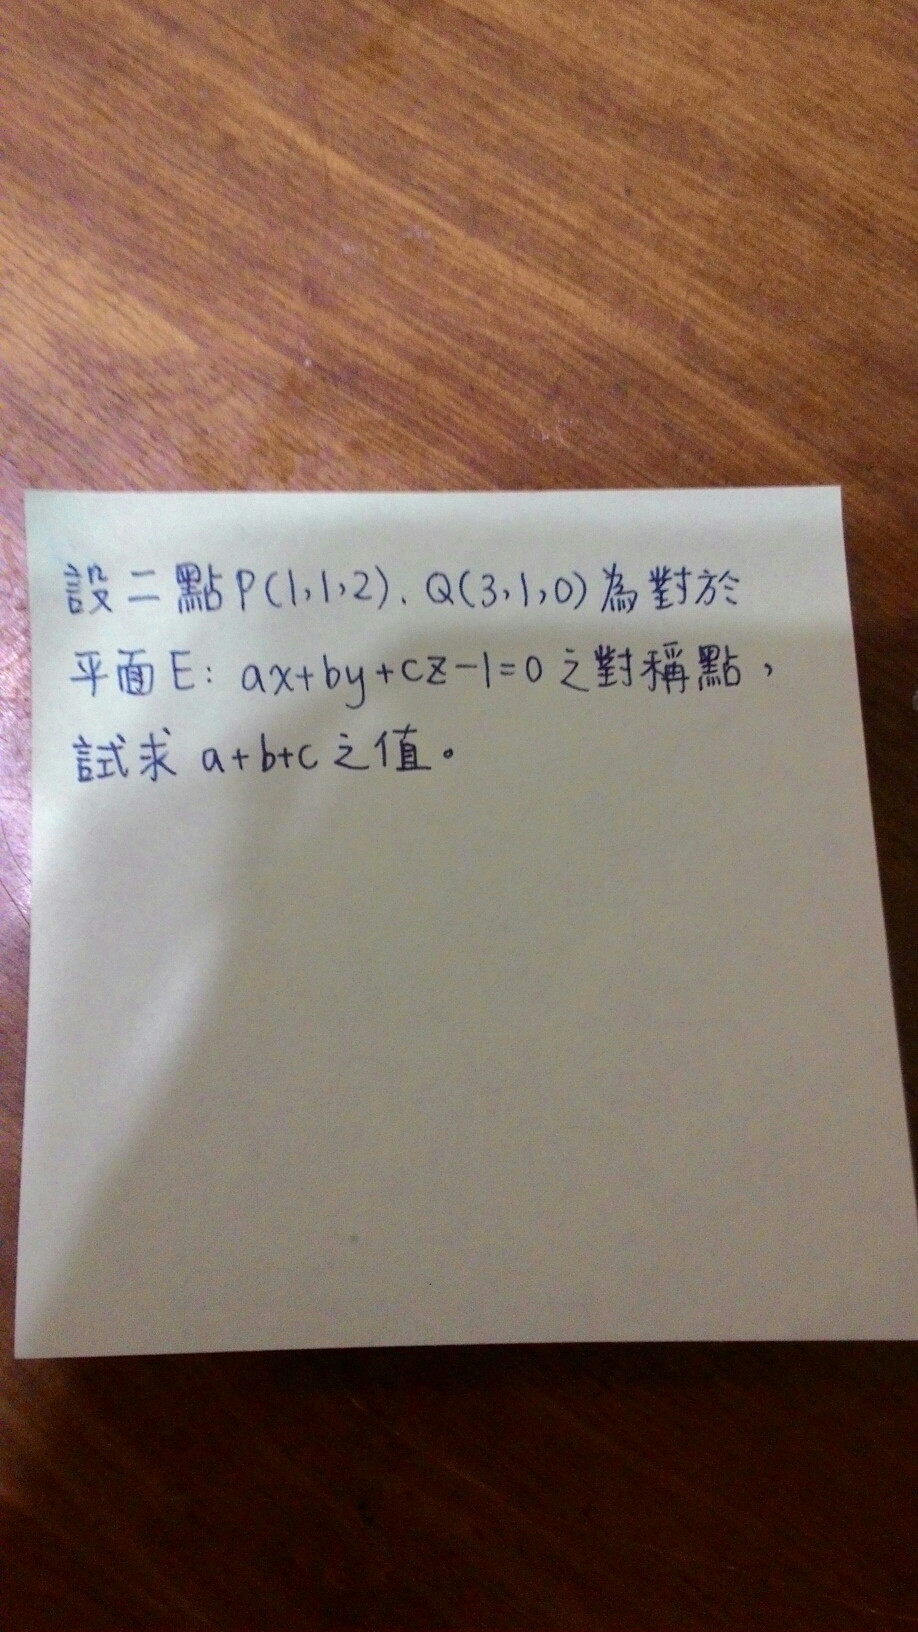 設二點P(1,1,2)、Q(3,1,0)為對於
平面E: ax+by+cz-1=0之對稱點,
試求 a+b+c 之值。